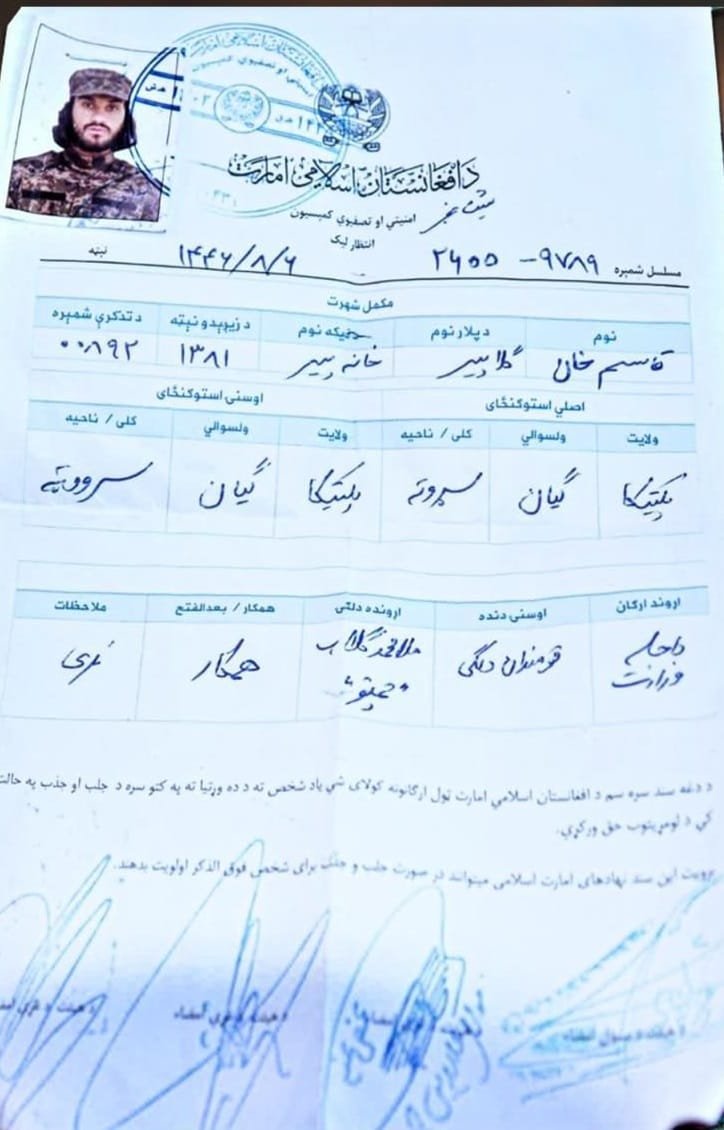 د افغانستان اسلامي امارت
امنیتي او تصفیوي کمیسیون
انتظار لیک
مسلسل شمېره ۹۷۸۹- ۲۶۵۵ ۱۴۴۶/۸/۶ نېټه
مکمل شهرت
نوم د پلار نوم د نیکه نوم د زیږېدو نېټه د تذکرې شمېره
قاسم خان ګلاپیر خانه پیر ۱۳۸۱ ۰۰۸۹۲
اصلي استوګنځای اوسنی استوګنځای
ولایت ولسوالي کلی / ناحیه ولایت ولسوالي کلی / ناحیه
پکتیکا ګیان سروټه پکتیکا ګیان سرووټه
اړوند ارګان اوسنی دنده اړونده دلګی همکار / بعدالفتح ملاحظات
داخلې وزارت قومندان دلګی همکار نری
د دغه سند سره سم د افغانستان اسلامي امارت ټول ارګانونه کولای شي یاد شخص ته د ده وړتیا ته په کتو سره د جلب او جذب په حالت
کې د لومړیتوب حق ورکړي.
برویت این سند نهادهای امارت اسلامی میتوانند در صورت جلب و جذب برای شخص فوق الذکر اولویت بدهند.
د هیئت د مسول امضاء د هیئت د غړي امضاء